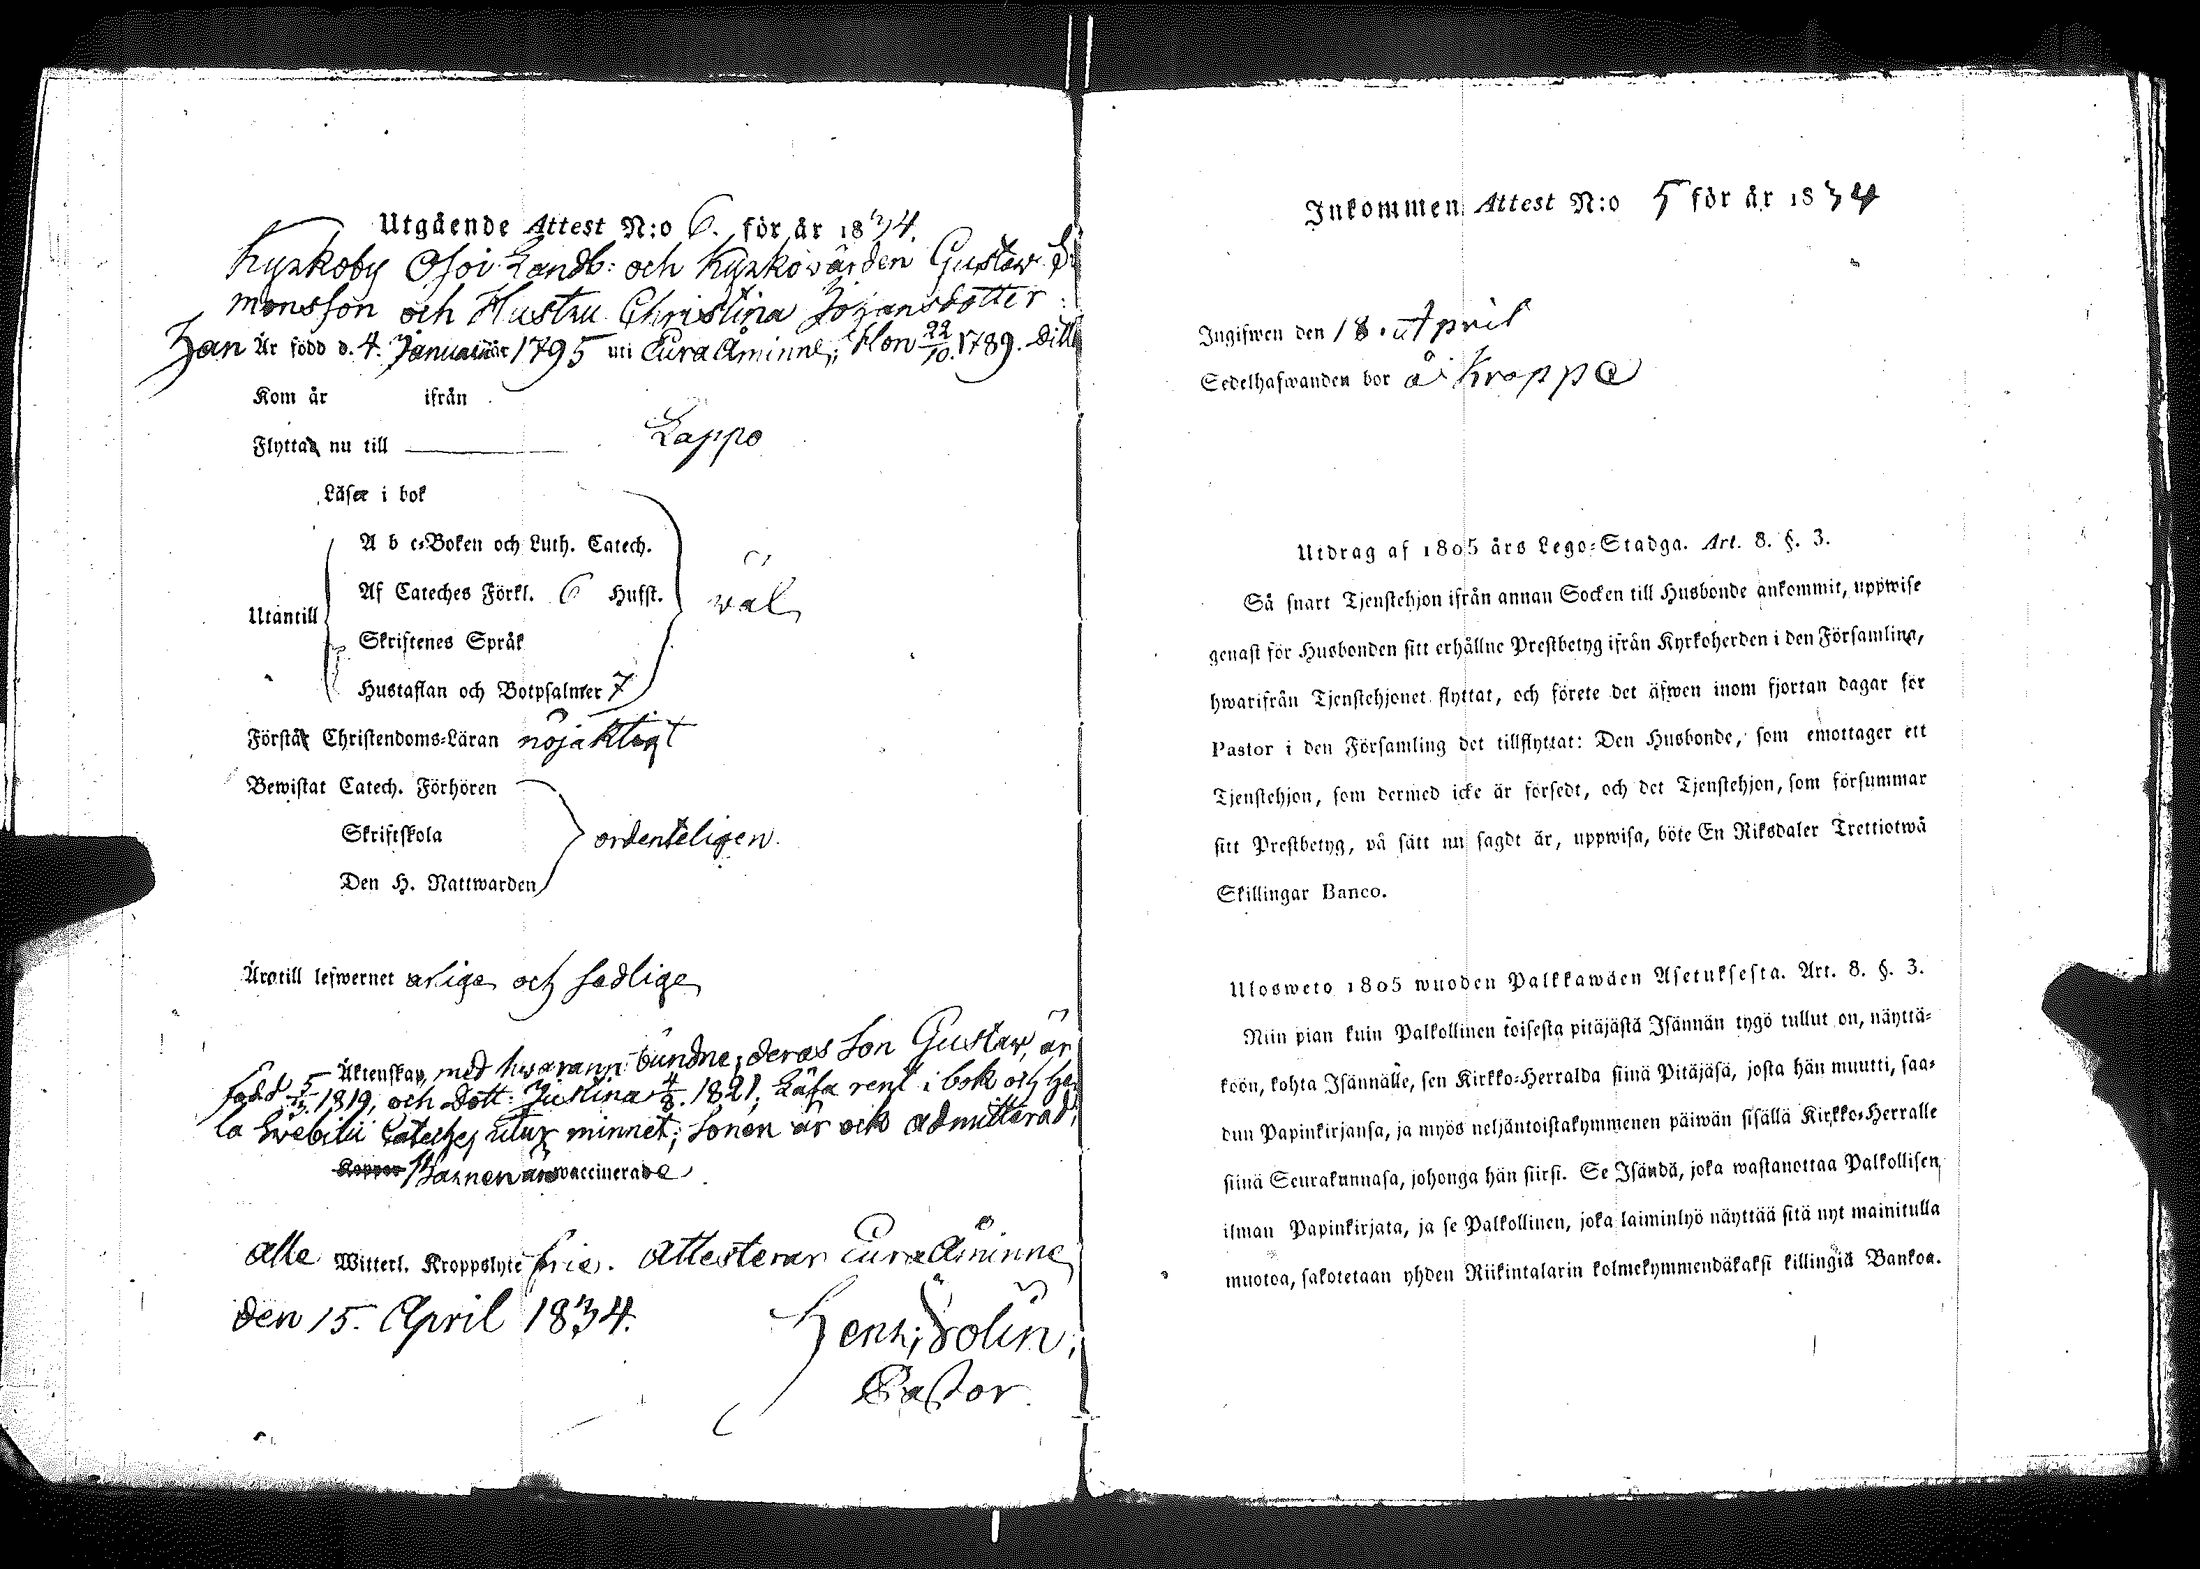 Utgående Attest N:o 6. för år 1834.
Kyrkoby Osoi Landb: och Kyrkowärden Gustaw
monsson och Hustru Christina Johansdotter
Han Är född d. 4. Januarii år 1795 uti Eura Åminne; Hon 22/10. 1789. Dito
Kom år ifrån
Flytta nu till Lappo
Läser i bok
A b c-Boken och Luth. Catech.
Af Cateches Förkl. 6 Hufst.
wäl
Utantill
Skriftenes Språk
Hustaflan och Botpsalmer 7
Förstå Christendoms-Läran nöjaktigt
Bewistat Catech. Förhören
Skriftskola
ordenteligen.
Den H. Nattwarden
Äro till lefwernet ärlige och sedlige
Äktenskap med hwarann bundne; deras Son Gustaw, är
född 1819, och Dott: Justina 4/8. 1821; Läsa rent i bok och he
la Swebilii Cateches utur minnet; Sonen är ock admitterad;
Koppor Barnen äro vaccinerade
Alle Witterl. Kroppslyte frie. Attesterar Eura Åminne
den 15. April 1834.
Henr: Rolin,
Pastor.
Inkommen Attest N:o 5 för år 1834
Ingifwen den 18. April
Sedelhafwanden bor å Kroppa
Utdrag af 1805 års Lego-Stadga. Art. 8. §. 3.
Så snart Tjenstehjon ifrån annan Socken till Husbonde ankommit, uppwise
genast för Husbonden sitt erhållne Prestbetyg ifrån Kyrkoherden i den Församling,
hwarifrån Tjenstehjonet flyttat, och förete det äfwen inom fjortan dagar för
Pastor i den Församling det tillflyttat: Den Husbonde, som emottager ett
Tjenstehjon, som dermed icke är försedt, och det Tjenstehjon, som försummar
sitt Prestbetyg, på sätt nu sagdt är, uppwisa, böte En Riksdaler Trettiotwå
Skillingar Banco.
Ulosweto 1805 wuoden Palkkawäen Asetuksesta. Art. 8. §. 3.
Niin pian kuin Palkollinen toisesta pitäjästä Isännän tygö tullut on, näyttä-
köön, kohta Isännälle, sen Kirkko-Herralda siinä Pitäjäsä, josta hän muutti, saa-
dun Papinkirjansa, ja myös neljäntoistakymmenen päiwän sisällä Kirkko-Herralle
siinä Seurakunnasa, johonga hän siirsi. Se Isändä, joka wastanottaa Palkollisen
ilman Papinkirjata, ja se Palkollinen, joka laiminlyö näyttää sitä nyt mainitulla
muotoa, sakotetaan yhden Riikintalarin kolmekymmendäkaksi killingiä Bankoa.